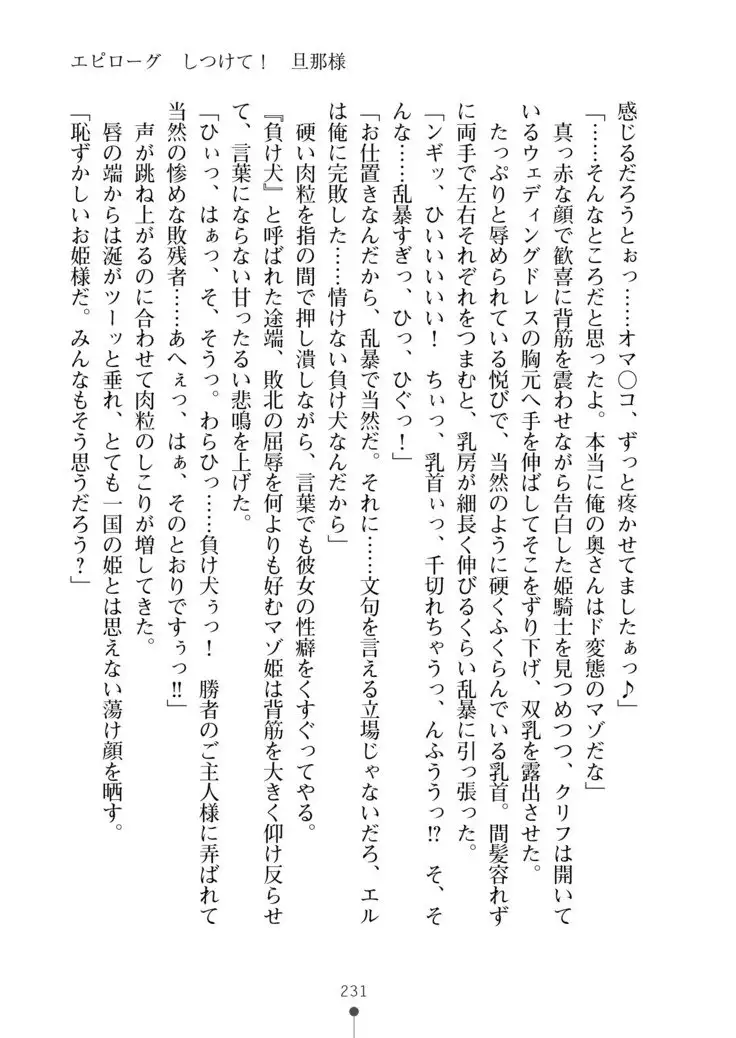 エピローグ　しつけて！　旦那様
感じるだろうとぉっ……オマ○コ、ずっと疼かせてましたぁっ♪」
「……そんなところだと思ったよ。本当に俺の奥さんはド変態のマゾだな」
　真っ赤な顔で歓喜に背筋を震わせながら告白した姫騎士を見つめつつ、クリフは開いて
いるウェディングドレスの胸元へ手を伸ばしてそこをずり下げ、双乳を露出させた。
　たっぷりと辱められている悦びで、当然のように硬くふくらんでいる乳首。間髪容れず
に両手で左右それぞれをつまむと、乳房が細長く伸びるくらい乱暴に引っ張った。
「ンギッ、ひいいいいい！　ちぃっ、乳首ぃっ、千切れちゃうっ、んふううっ!?　そ、そ
んな……乱暴すぎっ、ひっ、ひぐっ！」
「お仕置きなんだから、乱暴で当然だ。それに……文句を言える立場じゃないだろ、エル
は俺に完敗した……情けない負け犬なんだから」
　硬い肉粒を指の間で押し潰しながら、言葉でも彼女の性癖をくすぐってやる。
『負け犬』と呼ばれた途端、敗北の屈辱を何よりも好むマゾ姫は背筋を大きく仰け反らせ
て、言葉にならない甘ったるい悲鳴を上げた。
「ひぃっ、はぁっ、そ、そうっ。わらひっ……負け犬ぅっ！　勝者のご主人様に弄ばれて
当然の惨めな敗残者……あへぇっ、はぁ、そのとおりですぅっ!!」
　声が跳ね上がるのに合わせて肉粒のしこりが増してきた。
　唇の端からは涎がツーッと垂れ、とても一国の姫とは思えない蕩け顔を晒す。
「恥ずかしいお姫様だ。みんなもそう思うだろう？」
231